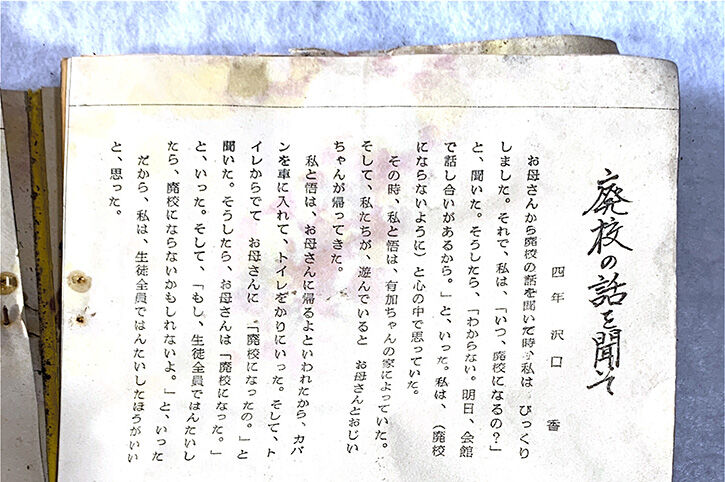 廃校の話を聞いて
四年 沢口 香
お母さんから廃校の話を聞いた時、私は びっくり
しました。それで、私は、「いつ、廃校になるの？」
と、聞いた。そうしたら、「わからない。明日、会館
で話し合いがあるから。」と、いった。私は、（廃校
にならないように）と心の中で思っていた。
その時、私と悟は、有加ちゃんの家によっていた。
そして、私たちが、遊んでいると お母さんとおじい
ちゃんが帰ってきた。
私と悟は、お母さんに帰るよといわれたから、カバ
ンを車に入れて、トイレをかりにいった。そして、ト
イレからでて お母さんに 「廃校になったの。」と
聞いた。そうしたら、お母さんは「廃校になった。」
と、いった。そして、「もし、生徒全員ではんたいし
たら、廃校にならないかもしれないよ。」と、いった
だから、私は、生徒全員ではんたいしたほうがいい
と、思った。